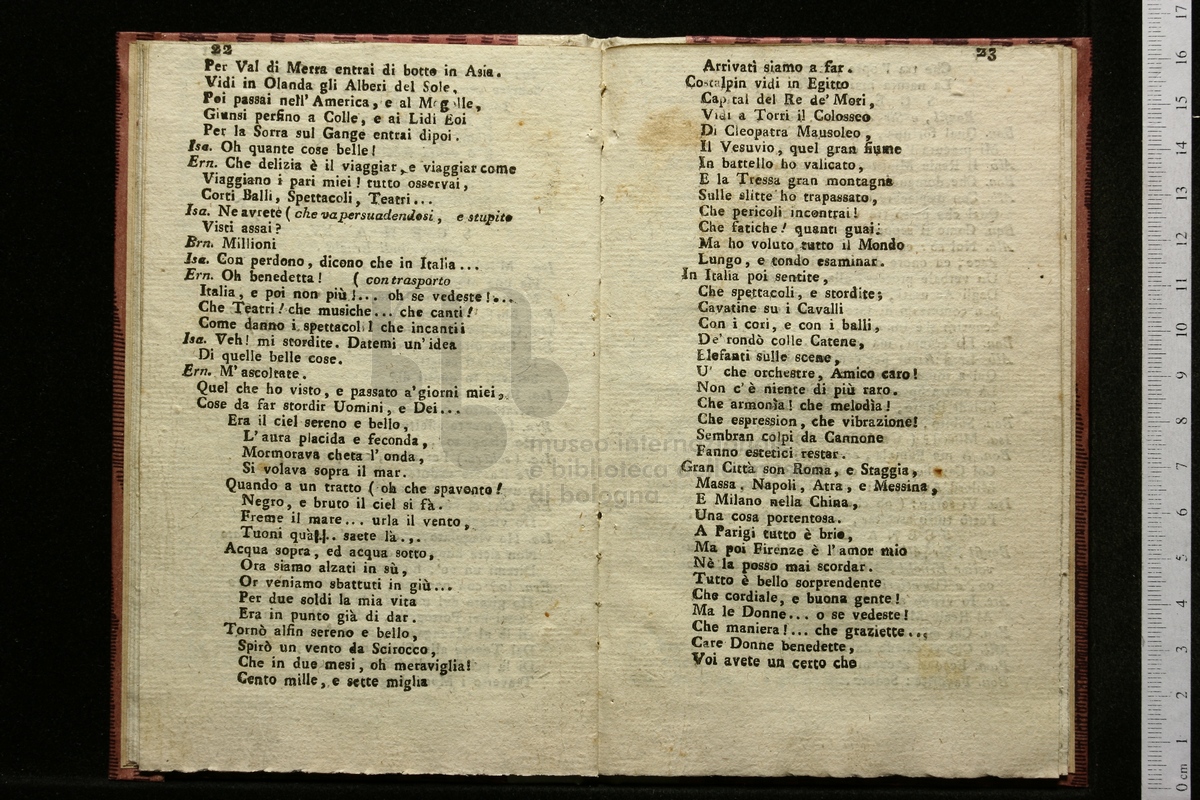 22
Per Val di Merra entrai di botto in Asia.
Vidi in Olanda gli Alberi del Sole,
Poi passai nell' America, e al
Giunsi perfino a Colle, e ai Lidi Eoi
Per la Sorra sul Gange entrai dipoi.
Isa. Oh quante cose belle!
Ern. Che delizia è il viaggiar, e viaggiar come
Viaggiano i pari miei! tutto osservai,
Corti Balli, Spettacoli, Teatri...
Isa. Ne avrete ( che va persuadendosi, e stupito
Visti assai?
Ern. Millioni
Isa. Con perdono, dicono che in Italia...
Ern. Oh benedetta! ( con trasporto
Italia, e poi non più!... oh se vedeste!...
Che Teatri! che musiche... che canti!
Come danno i spettacoli I che incanti
Isa. Veh! mi stordite. Datemi un' idea
Di quelle belle cose.
Ern. M' ascoltate.
Quel che ho visto, e passato a' giorni miei,
Cose da far stordir Uomini, e Dei...
Era il ciel sereno e bello,
L' aura placida e feconda,
Mormorava cheta l' onda,
Si volava sopra il mar.
Quando a un tratto ( oh che spavento!
Negro, e bruto il ciel si fà.
Freme il mare... urla il vento,
Tuoni quà... saete là...
Acqua sopra, ed acqua sotto,
Ora siamo alzati in sù,
Or veniamo sbattuti in giù...
Per due soldi la mia vita
Era in punto già di dar.
Tornò alfin sereno e bello,
Spirò un vento da Scirocco,
Che in due mesi, oh meraviglia!
Cento mille, e sette miglia
23
Arrivati siamo a far.
Costalpin vidi in Egitto
Capital del Re de' Mori,
Vidi a Torri il Colosseo
Di Cleopatra Mausoleo,
Il Vesuvio, quel gran fiume
In battello ho valicato,
E la Tressa gran montagna
Sulle slitte ho trapassato,
Che pericoli incontrai!
Che fatiche! quanti guai:
Ma ho voluto tutto il Mondo
Lungo, e tondo esaminar.
In Italia poi sentite,
Che spettacoli, e stordite;
Cavatine su i Cavalli
Con i cori, e con i balli,
De' rondò colle Catene,
Elefanti sulle scene,
U' che orchestre, Amico caro!
Non c' è niente di più raro.
Che armonìa! che melodìa!
Che espression, che vibrazione!
Sembran colpi da Cannone
Fanno estetici restar.
Gran Città son Roma, e Staggia,
Massa, Napoli, Atra, e Messina,
E Milano nella China,
Una cosa portentosa.
A Parigi tutto è brio,
Ma poi Firenze è l' amor mio
Nè la posso mai scordar.
Tutto è bello sorprendente
Che cordiale, e buona gente!
Ma le Donne... o se vedeste!
Che maniera!... che graziette...
Care Donne benedette,
Voi avete un certo che
museo internazionale
e biblioteca
di bologna
17
16
15
14
13
12
11
10
9
8
7
6
5
4
3
2
1
0 cm